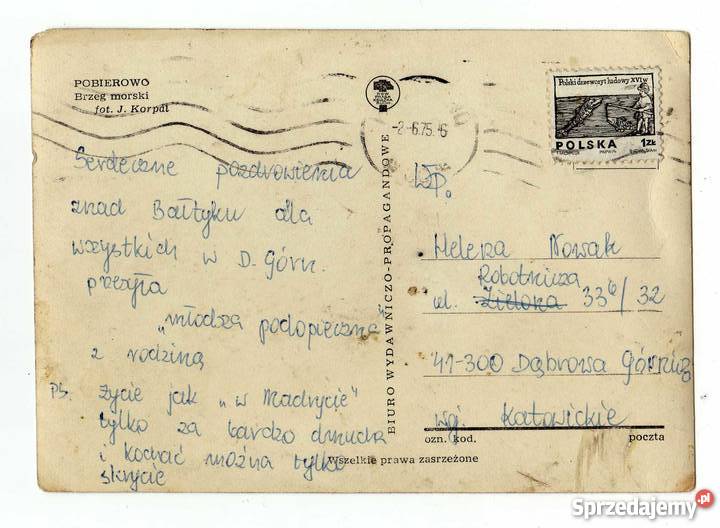 POBIEROWO
Brzeg morski
fot. J. Korpal
Serdeczne pozdrowienia
znad Bałtyku dla
wszystkich w D. Górn.
przesyła
"młodsza podopieczna"
z rodziną
PS. Życie jak "w Madrycie"
tylko za bardzo dmucha
i kochać można tylko
skrycie
BIURO WYDAWNICZO-PROPAGANDOWE
-2-6.75.-6
Polski drzeworyt ludowy XVI w
POLSKA 1ZŁ
WP.
Helena Nowak
Robotnicza
ul. Zielona 33b/32
41-300 Dąbrowa Górnicz
woj. Katowickie
ozn. kod. poczta
Wszelkie prawa zastrzeżone
Sprzedajemy.pl